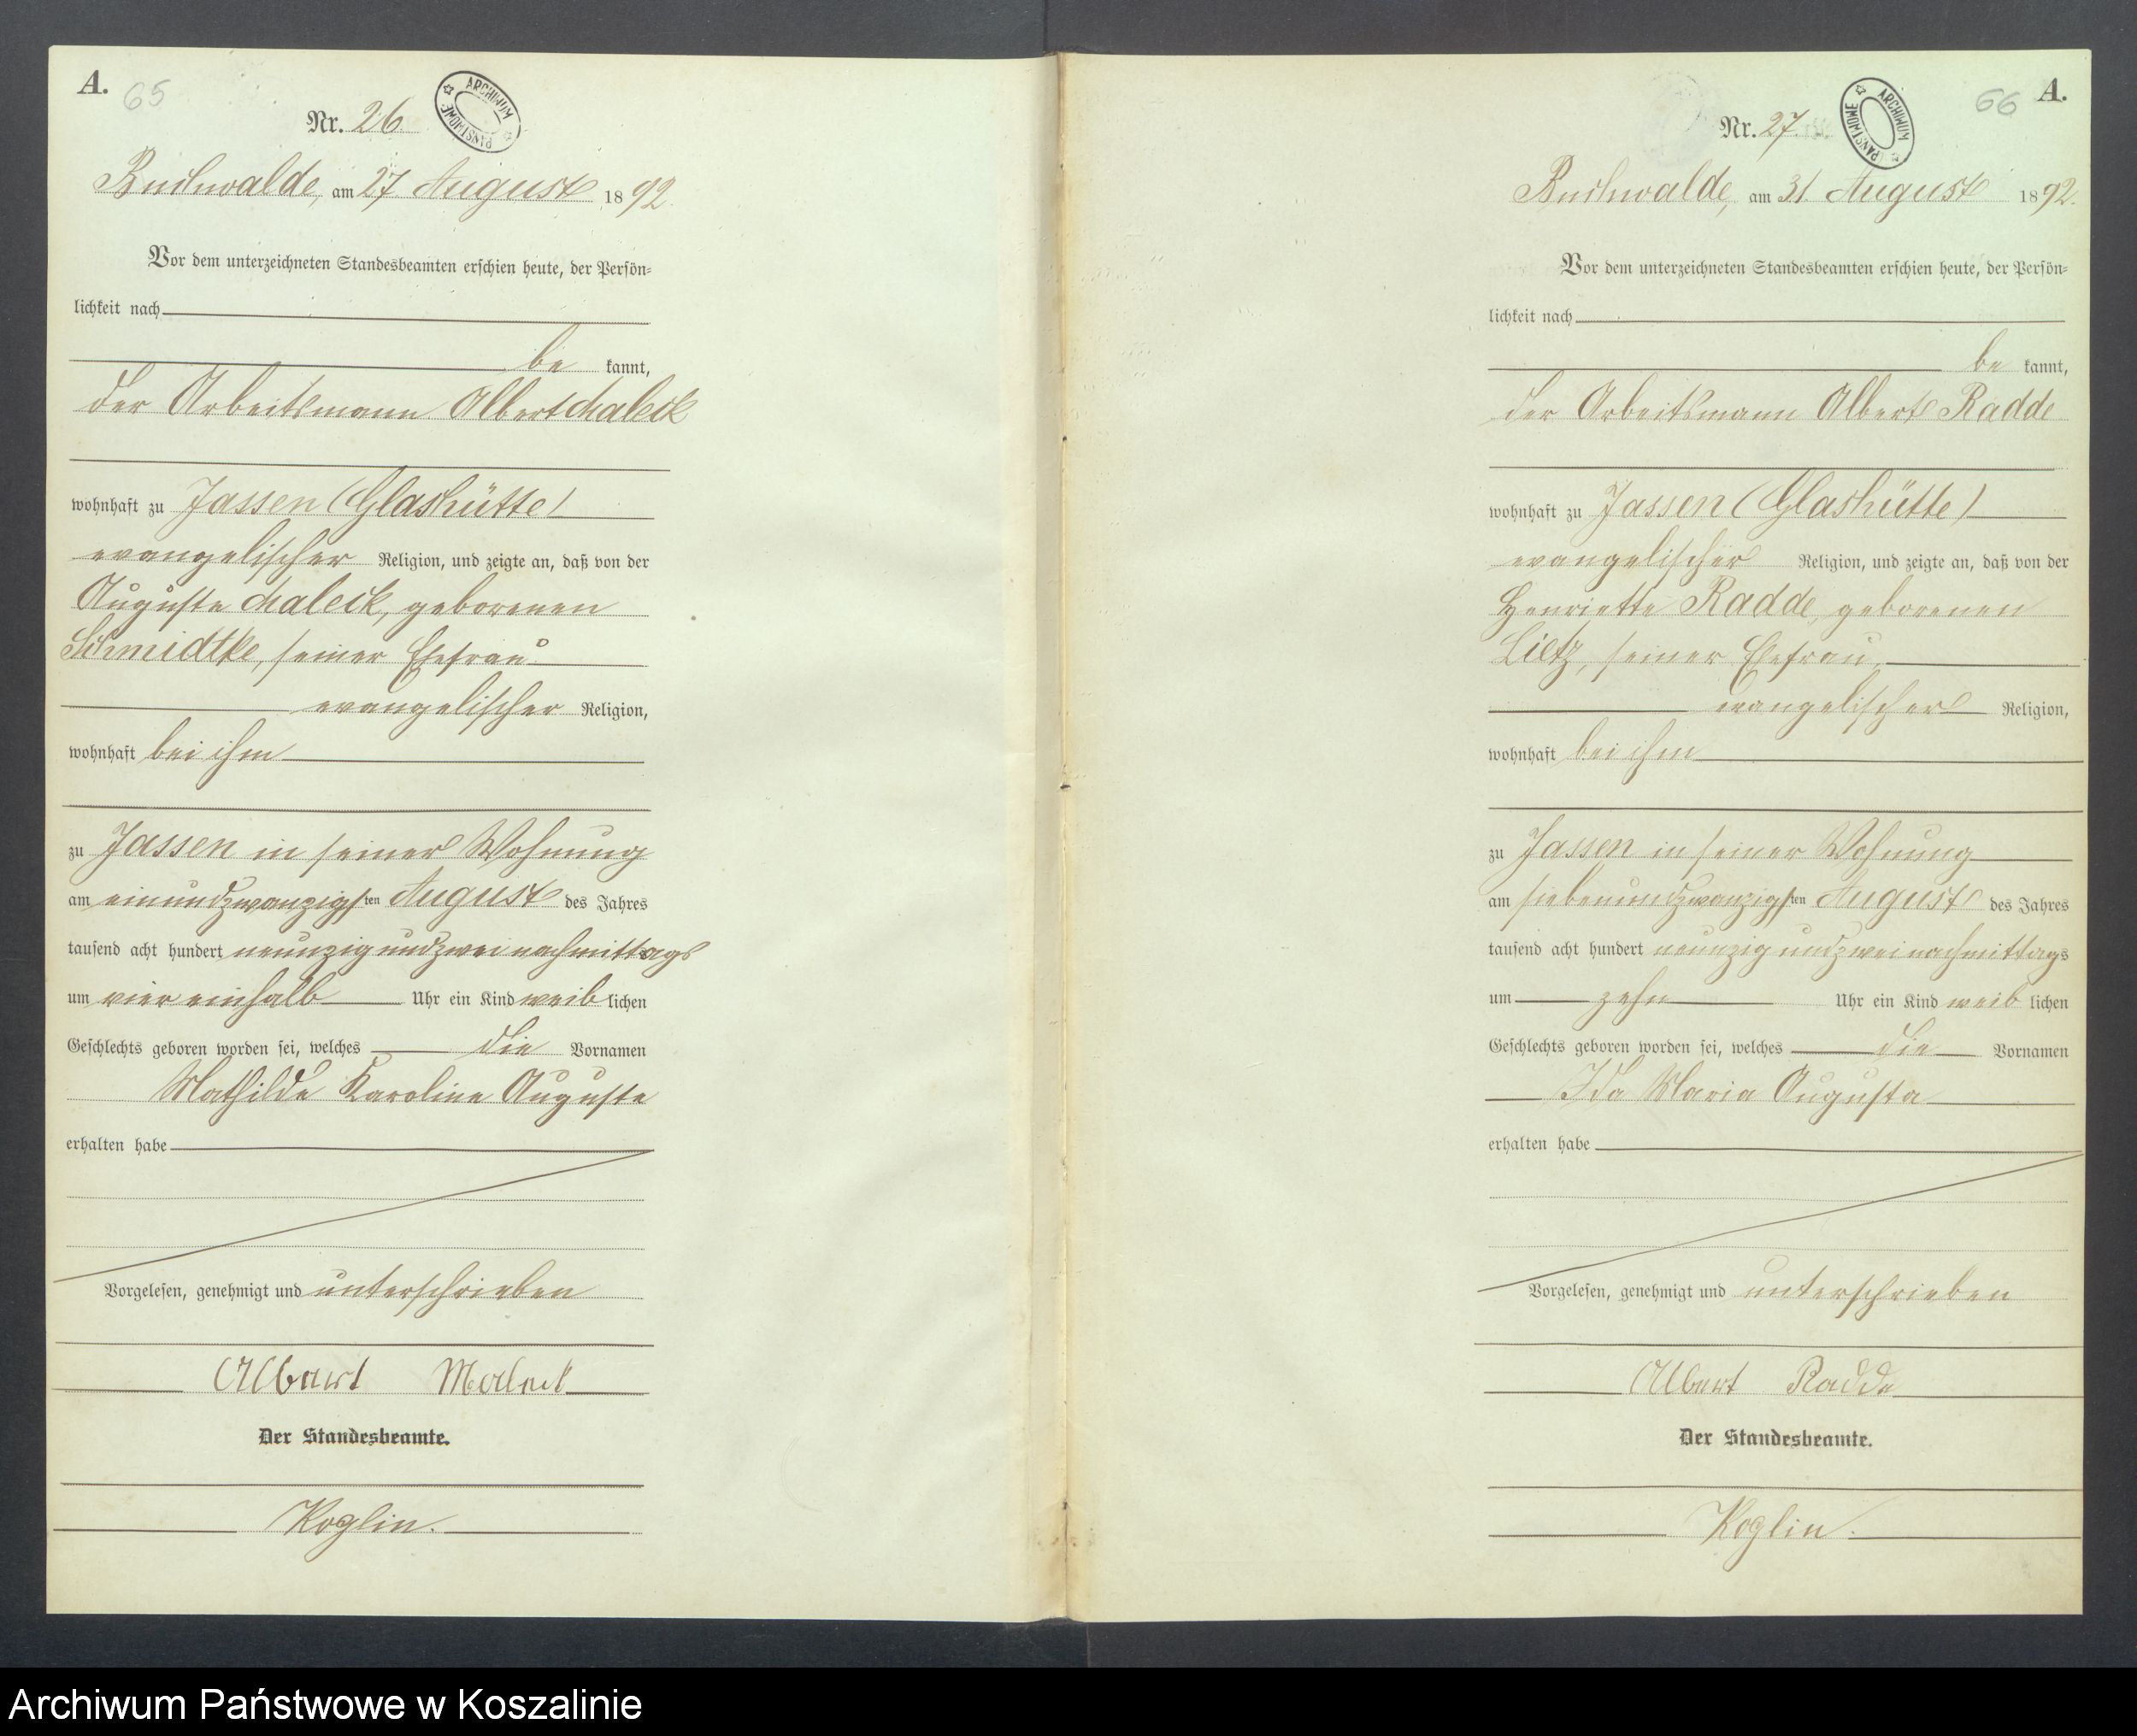 A. 65
ARCHIWUM PAŃSTWOWE
Nr. 26.
Buchwalde, am 27. August 1892.
Vor dem unterzeichneten Standesbeamten erschien heute, der Persön-
lichkeit nach
be kannt,
der Arbeitsmann Albert Maleck
wohnhaft zu Jassen (Glashütte)
evangelischer Religion, und zeigte an, daß von der
Auguste Maleck, geborenen
Schmidtke, seiner Ehefrau
evangelischer Religion,
wohnhaft bei ihm
zu Jassen in seiner Wohnung
am einundzwanzigsten August des Jahres
tausend acht hundert neunzig und zwei nachmittags
um vier einhalb Uhr ein Kind weiblichen
Geschlechts geboren worden sei, welches die Vornamen
Mathilde Karoline Auguste
erhalten habe
Vorgelesen, genehmigt und unterschrieben
Albert Maleck
Der Standesbeamte.
Koglin.
66 A.
ARCHIWUM PAŃSTWOWE
Nr. 27.
Buchwalde, am 31. August 1892.
Vor dem unterzeichneten Standesbeamten erschien heute, der Persön-
lichkeit nach
be kannt,
der Arbeitsmann Albert Radde
wohnhaft zu Jassen (Glashütte)
evangelischer Religion, und zeigte an, daß von der
Henriette Radde, geborenen
Lietz, seiner Ehefrau,
evangelischer Religion,
wohnhaft bei ihm
zu Jassen in seiner Wohnung
am siebenundzwanzigsten August des Jahres
tausend acht hundert neunzig und zwei nachmittags
um zehn Uhr ein Kind weiblichen
Geschlechts geboren worden sei, welches die Vornamen
Ida Maria Augusta
erhalten habe
Vorgelesen, genehmigt und unterschrieben
Albert Radde
Der Standesbeamte.
Koglin.
Archiwum Państwowe w Koszalinie